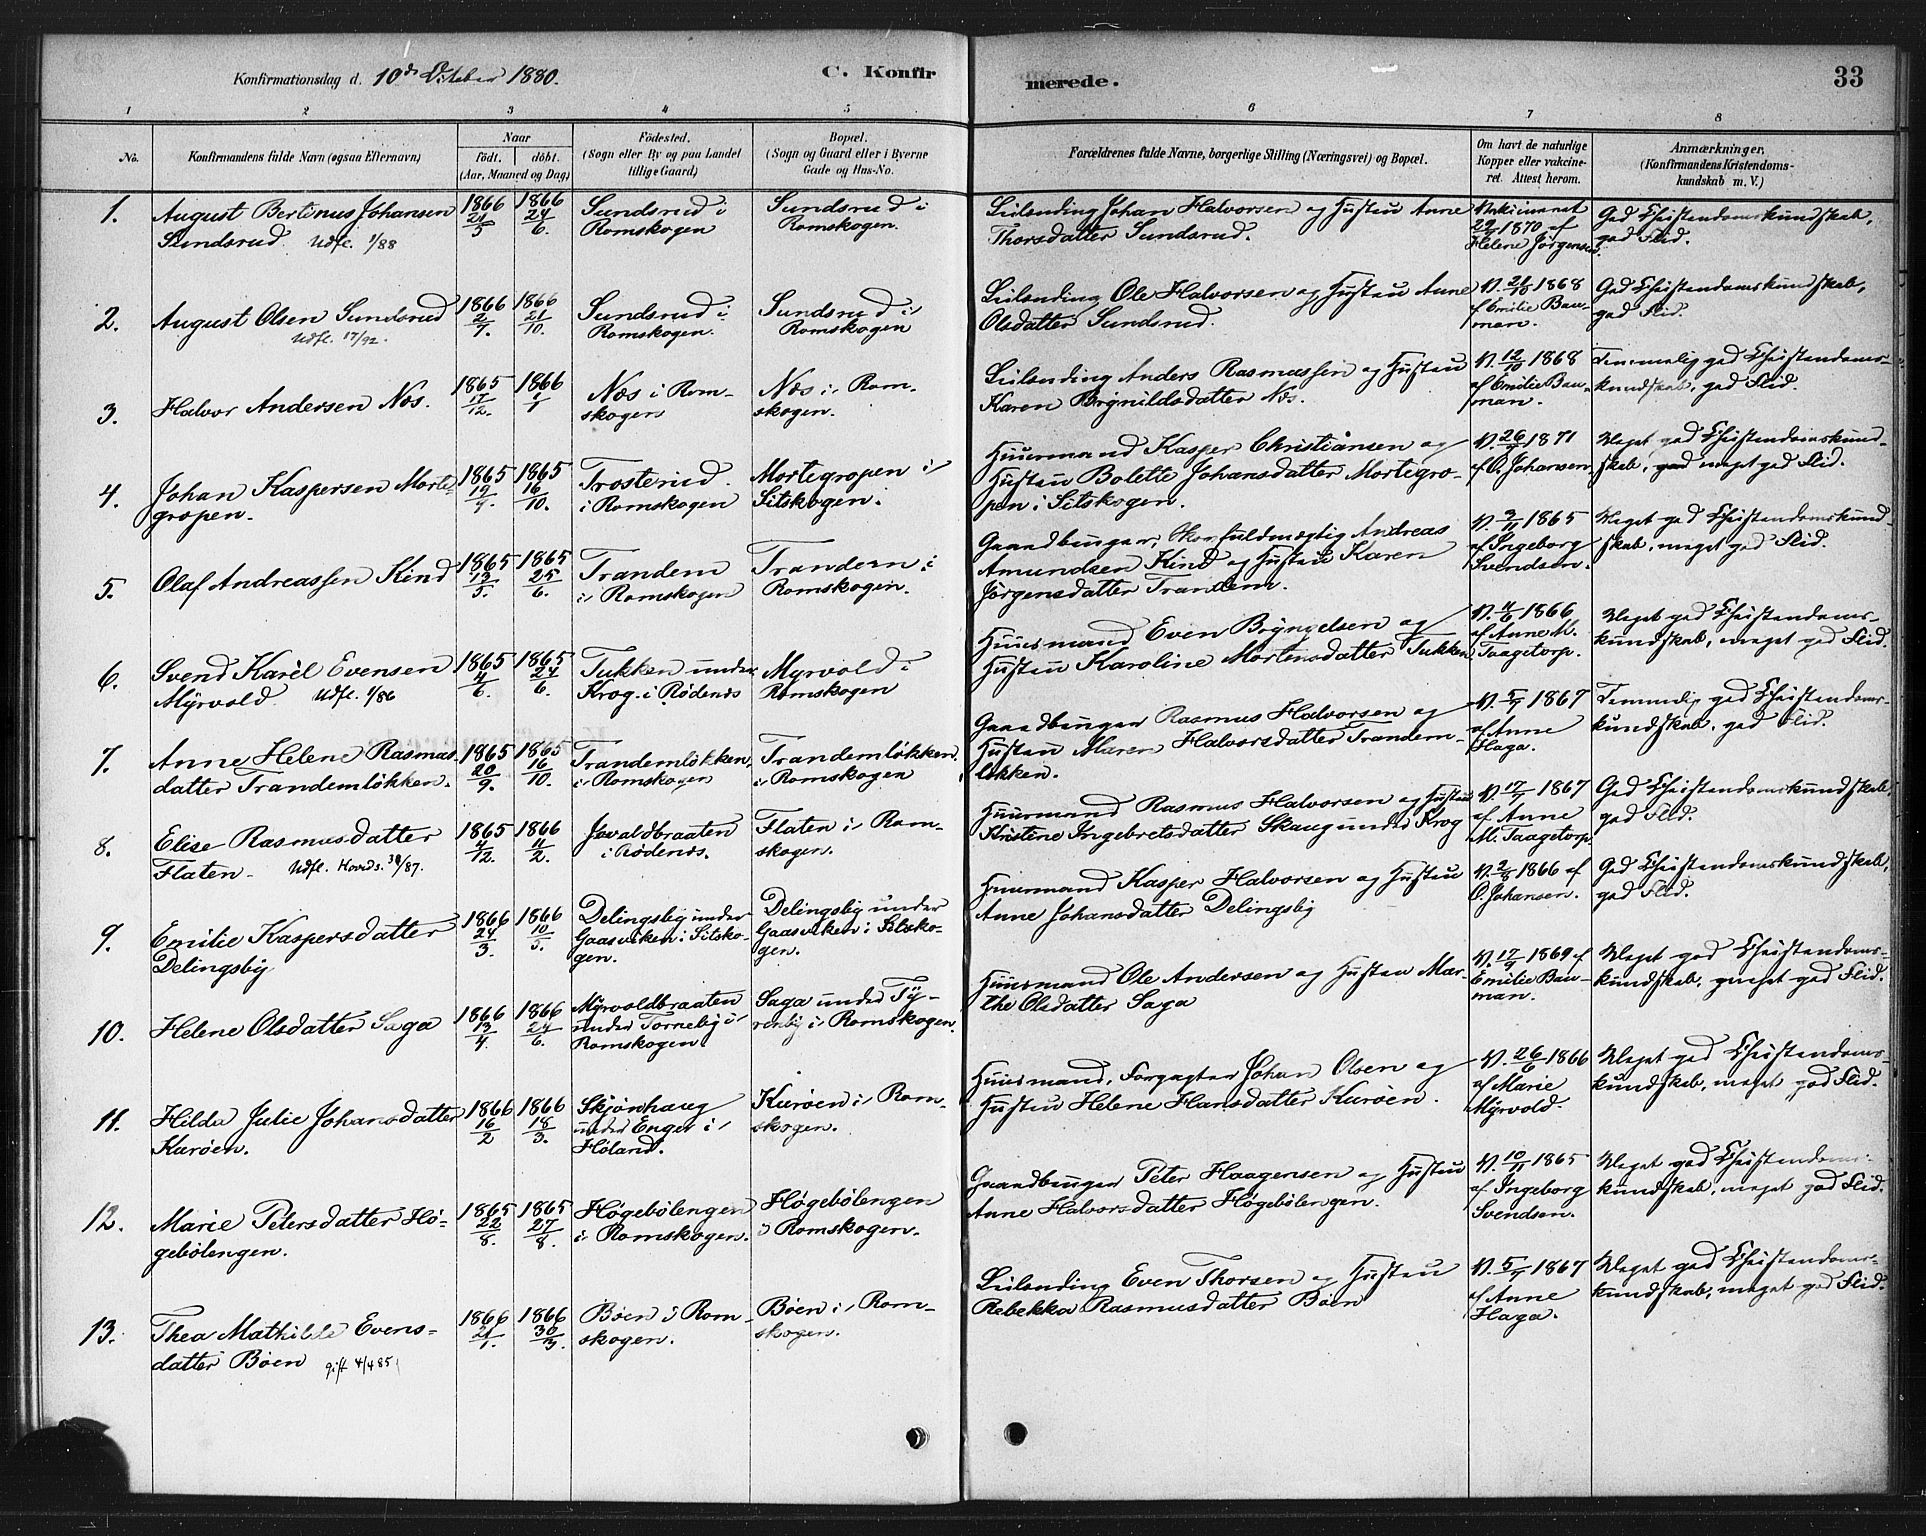 Konfirmationsdag d. 10de October 1880.
C. Konfirmerede.
33
1 2 3 4 5 6 7 8
No.
Konfirmandens fulde Navn (ogsaa Efternavn)
Naar
födt. döbt.
(Aar, Maaned og Dag)
Födested.
(Sogn eller By og paa Landet
tillige Gaard)
Bopæl.
(Sogn og Gaard eller i Byerne
Gade og Hus-No.
Forældrenes fulde Navne, borgerlige Stilling (Næringsvei) og Bopæl.
Om havt de naturlige
Kopper eller vakcine-
ret. Attest herom.
Anmærkninger.
(Konfirmandens Kristendoms-
kundskab m. V.)
1.
August Bertinus Johansen
Sundsrud. Udfl. 1/88
1866 21/5
1866 24/6.
Sundsrud i
Romskogen
Sundsrud i
Romskogen.
Leilænding Johan Halvorsen og Hustru Anne
Thorsdatter Sundsrud.
Vakcineret
22/7 1870 af
Helene Jørgensen.
God Christendomskundskab,
god Flid.
2.
August Olsen Sundsrud
Udfl. 17/92.
1866 2/7.
1866 21/10.
Sundsrud i
Romskogen.
Sundsrud i
Romskogen
Leilænding Ole Halvorsen og Hustru Anne
Olsdatter Sundsrud.
V. 21/10 1868
af Emilie Bau-
man.
God Christendomskundskab,
god Flid.
3.
Halvor Andersen Næs.
1865 17/12.
1866 1/1
Næs i Rom-
skogen
Næs i Rom-
skogen.
Leilænding Anders Rasmussen og Hustru
Karen Brynildsdatter Næs.
V. 12/10 1868
af Emilie Bau-
man.
Temmelig god Christendoms-
kundskab, god Flid.
4.
Johan Kaspersen Morte-
gropen.
1865 19/9.
1865 16/10.
Trosterud
i Romskogen
Mortegropen i
Sitskogen.
Huusmand Kasper Christiansen og
Hustru Bolette Johansdatter Mortegro-
pen i Sitskogen.
V. 26/9 1871
af O. Johansen
Meget god Christendomskund-
skab, god meget god Flid.
5.
Olaf Andreassen Kind
1865 13/5.
1865 25/6.
Trandem
i Romskogen
Trandem i
Romskogen.
Gaardbruger, Skovfuldmægtig Andreas
Amundsen Kind og Hustru Karen
Jörgensdatter Trandem.
V. 3/11 1865
af Ingeborg
Svendsen.
Meget god Christendomskund-
skab, meget god Flid.
6.
Svend Karël Evensen
Myrvold. Udfl. 1/86
1865 4/6.
1865 24/6.
Tukken under
Krog i Rødenæs
Myrvold i
Romskogen
Huusmand Even Bryngelsen og
Hustru Karoline Mortensdatter Tukken
V. 4/6 1866
af Anne M.
Taagetorp.
Meget god Christendoms-
kundskab, meget god Flid.
7.
Anne Helene Rasmus-
datter Trandemløkken.
1865 20/9.
1865 16/10.
Trandemløkken
i Romskogen
Trandemløkken
i Romskogen
Gaardbruger Rasmus Halvorsen og
Hustru Maren Halvorsdatter Trandem-
løkken.
V. 5/7 1867
af Anne
Haga.
Temmelig god Christendoms-
kundskab, god Flid.
8.
Elise Rasmusdatter
Flaten. Udfl. /87.
1865 4/12.
1866 11/2.
i Rødenæs.
Flaten i Rom-
skogen.
Huusmand Rasmus Halvorsen og Hustru
Kristene Ingebretsdatter Skaug under Krog
V. 17/7 1867
af Anne
M. Taagetorp
God Christendomskundskab,
god Flid.
9.
Emilie Kaspersdatter
Delingsby
1866 24/3.
1866 10/5.
Delingsby under
Gaasviken i Sitsko-
gen.
Delingsby under
Gaasviken i Sitsko-
gen.
Huusmand Kasper Halvorsen og Hustru
Anne Johansdatter Delingsby
V. 2/8 1866 af
O. Johansen.
God Christendomskundskab,
god Flid.
10.
Helene Olsdatter Saga
1866 13/4.
1866 24/6.
Myrvoldbraaten
under Torneby i
Romskogen
Saga under Ty-
renby i Romskogen.
Huusmand Ole Andersen og Hustru Mar-
the Olsdatter Saga
V. 17/9 1869 af
Emilie Bau-
man.
Meget god Christendoms-
kundskab, meget god Flid.
11.
Hilda Julie Johansdatter
Karöen.
1866 16/2
1866 18/3.
Skjønhaug
under Enger i
Höland.
Kuröen i Rom-
skogen.
Huusmand, Forpagter Johan Olsen og
Hustru Helene Hansdatter Kuröen.
V. 26/6 1866
af Marie
Myrvold.
Meget god Christendoms-
kundskab, meget god Flid.
12.
Marie Petersdatter Hö-
gebölengen.
1865 22/8.
1865 27/8.
Högebölengen
i Romskogen.
Högebölengen
i Romskogen.
Gaardbruger Peter Haagensen og Hustru
Anne Halvorsdatter Högebölengen.
V. 10/11 1865
af Ingeborg
Svendsen.
Meget god Christendoms-
kundskab, meget god Flid.
13.
Thea Mathilde Evens-
datter Böen gift 4/4 85
1866 21/1.
1866 30/3.
Böen i Rom-
skogen.
Böen i Rom-
skogen.
Leilænding Even Thorsen og Hustru
Rebekka Rasmusdatter Böen
V. 5/7 1867
af Anne
Haga.
Meget god Christendoms-
kundskab, meget god Flid.